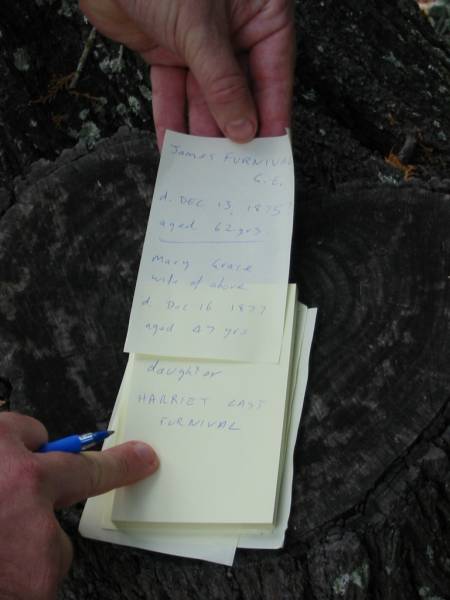 James FURNIVAL
C.E.
d. DEC 13, 1875
aged 62 yrs
Mary Grace
wife of above
d Dec 16 1877
aged 47 yrs
daughter
HARRIET EAST
FURNIVAL